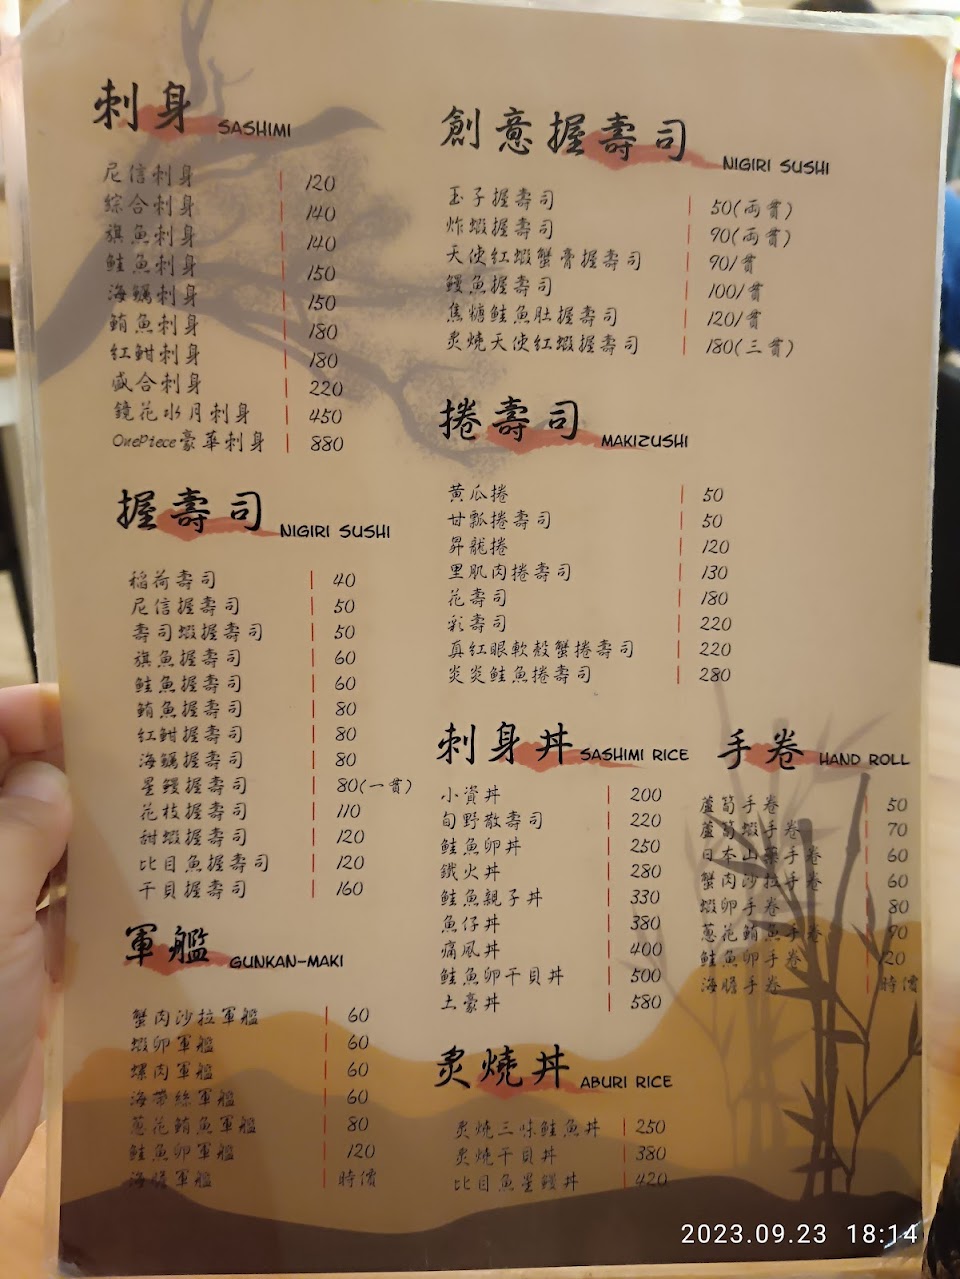 刺身 SASHIMI
尼信刺身 120
綜合刺身 140
旗魚刺身 140
鮭魚刺身 150
海鱺刺身 150
鮪魚刺身 180
紅魽刺身 180
盛合刺身 220
鏡花水月刺身 450
OnePiece豪華刺身 880
握壽司 NIGIRI SUSHI
稻荷壽司 40
尼信握壽司 50
壽司蝦握壽司 50
旗魚握壽司 60
鮭魚握壽司 60
鮪魚握壽司 80
紅魽握壽司 80
海鱺握壽司 80
星鰻握壽司 80(一貫)
花枝握壽司 110
甜蝦握壽司 120
比目魚握壽司 120
干貝握壽司 160
軍艦 GUNKAN-MAKI
蟹肉沙拉軍艦 60
蝦卵軍艦 60
螺肉軍艦 60
海帶絲軍艦 60
蔥花鮪魚軍艦 80
鮭魚卵軍艦 120
海膽軍艦 時價
創意握壽司 NIGIRI SUSHI
玉子握壽司 50(両貫)
炸蝦握壽司 90(両貫)
天使紅蝦蟹膏握壽司 90/貫
鰻魚握壽司 100/貫
焦糖鮭魚肚握壽司 120/貫
炙燒天使紅蝦握壽司 180(三貫)
捲壽司 MAKIZUSHI
黃瓜捲 50
甘瓢捲壽司 50
昇龍捲 120
里肌肉捲壽司 130
花壽司 180
彩壽司 220
真紅眼軟殼蟹捲壽司 220
炎炎鮭魚捲壽司 280
刺身丼 SASHIMI RICE
小資丼 200
旬野散壽司 220
鮭魚卵丼 250
鐵火丼 280
鮭魚親子丼 330
魚仔丼 380
痛風丼 400
鮭魚卵干貝丼 500
土豪丼 580
手卷 HAND ROLL
蘆筍手卷 50
蘆筍蝦手卷 70
日本山藥手卷 60
蟹肉沙拉手卷 60
蝦卵手卷 80
蔥花鮪魚手卷 90
鮭魚卵手卷 120
海膽手卷 時價
炙燒丼 ABURI RICE
炙燒三味鮭魚丼 250
炙燒干貝丼 380
比目魚星鰻丼 420
2023.09.23 18:14